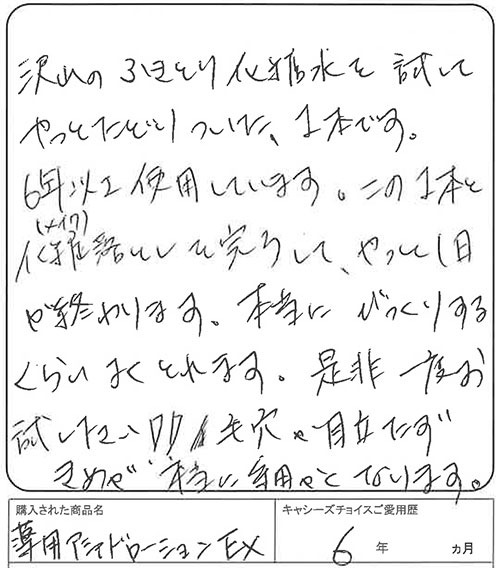 沢山のふきとり化粧水を試して
やっとたどりついた、1本です。
6年以上使用しています。この1本と
(メイク)
化粧落としを完了して、やっと1日
が終わります。本当にびっくりする
ぐらいよくとれます。是非一度お
試し下さい
毛穴や目立たず
きめが本当に細やかになります。
購入された商品名
キャシーズチョイスご愛用歴
薬用アミノローションEX
6年 ヵ月